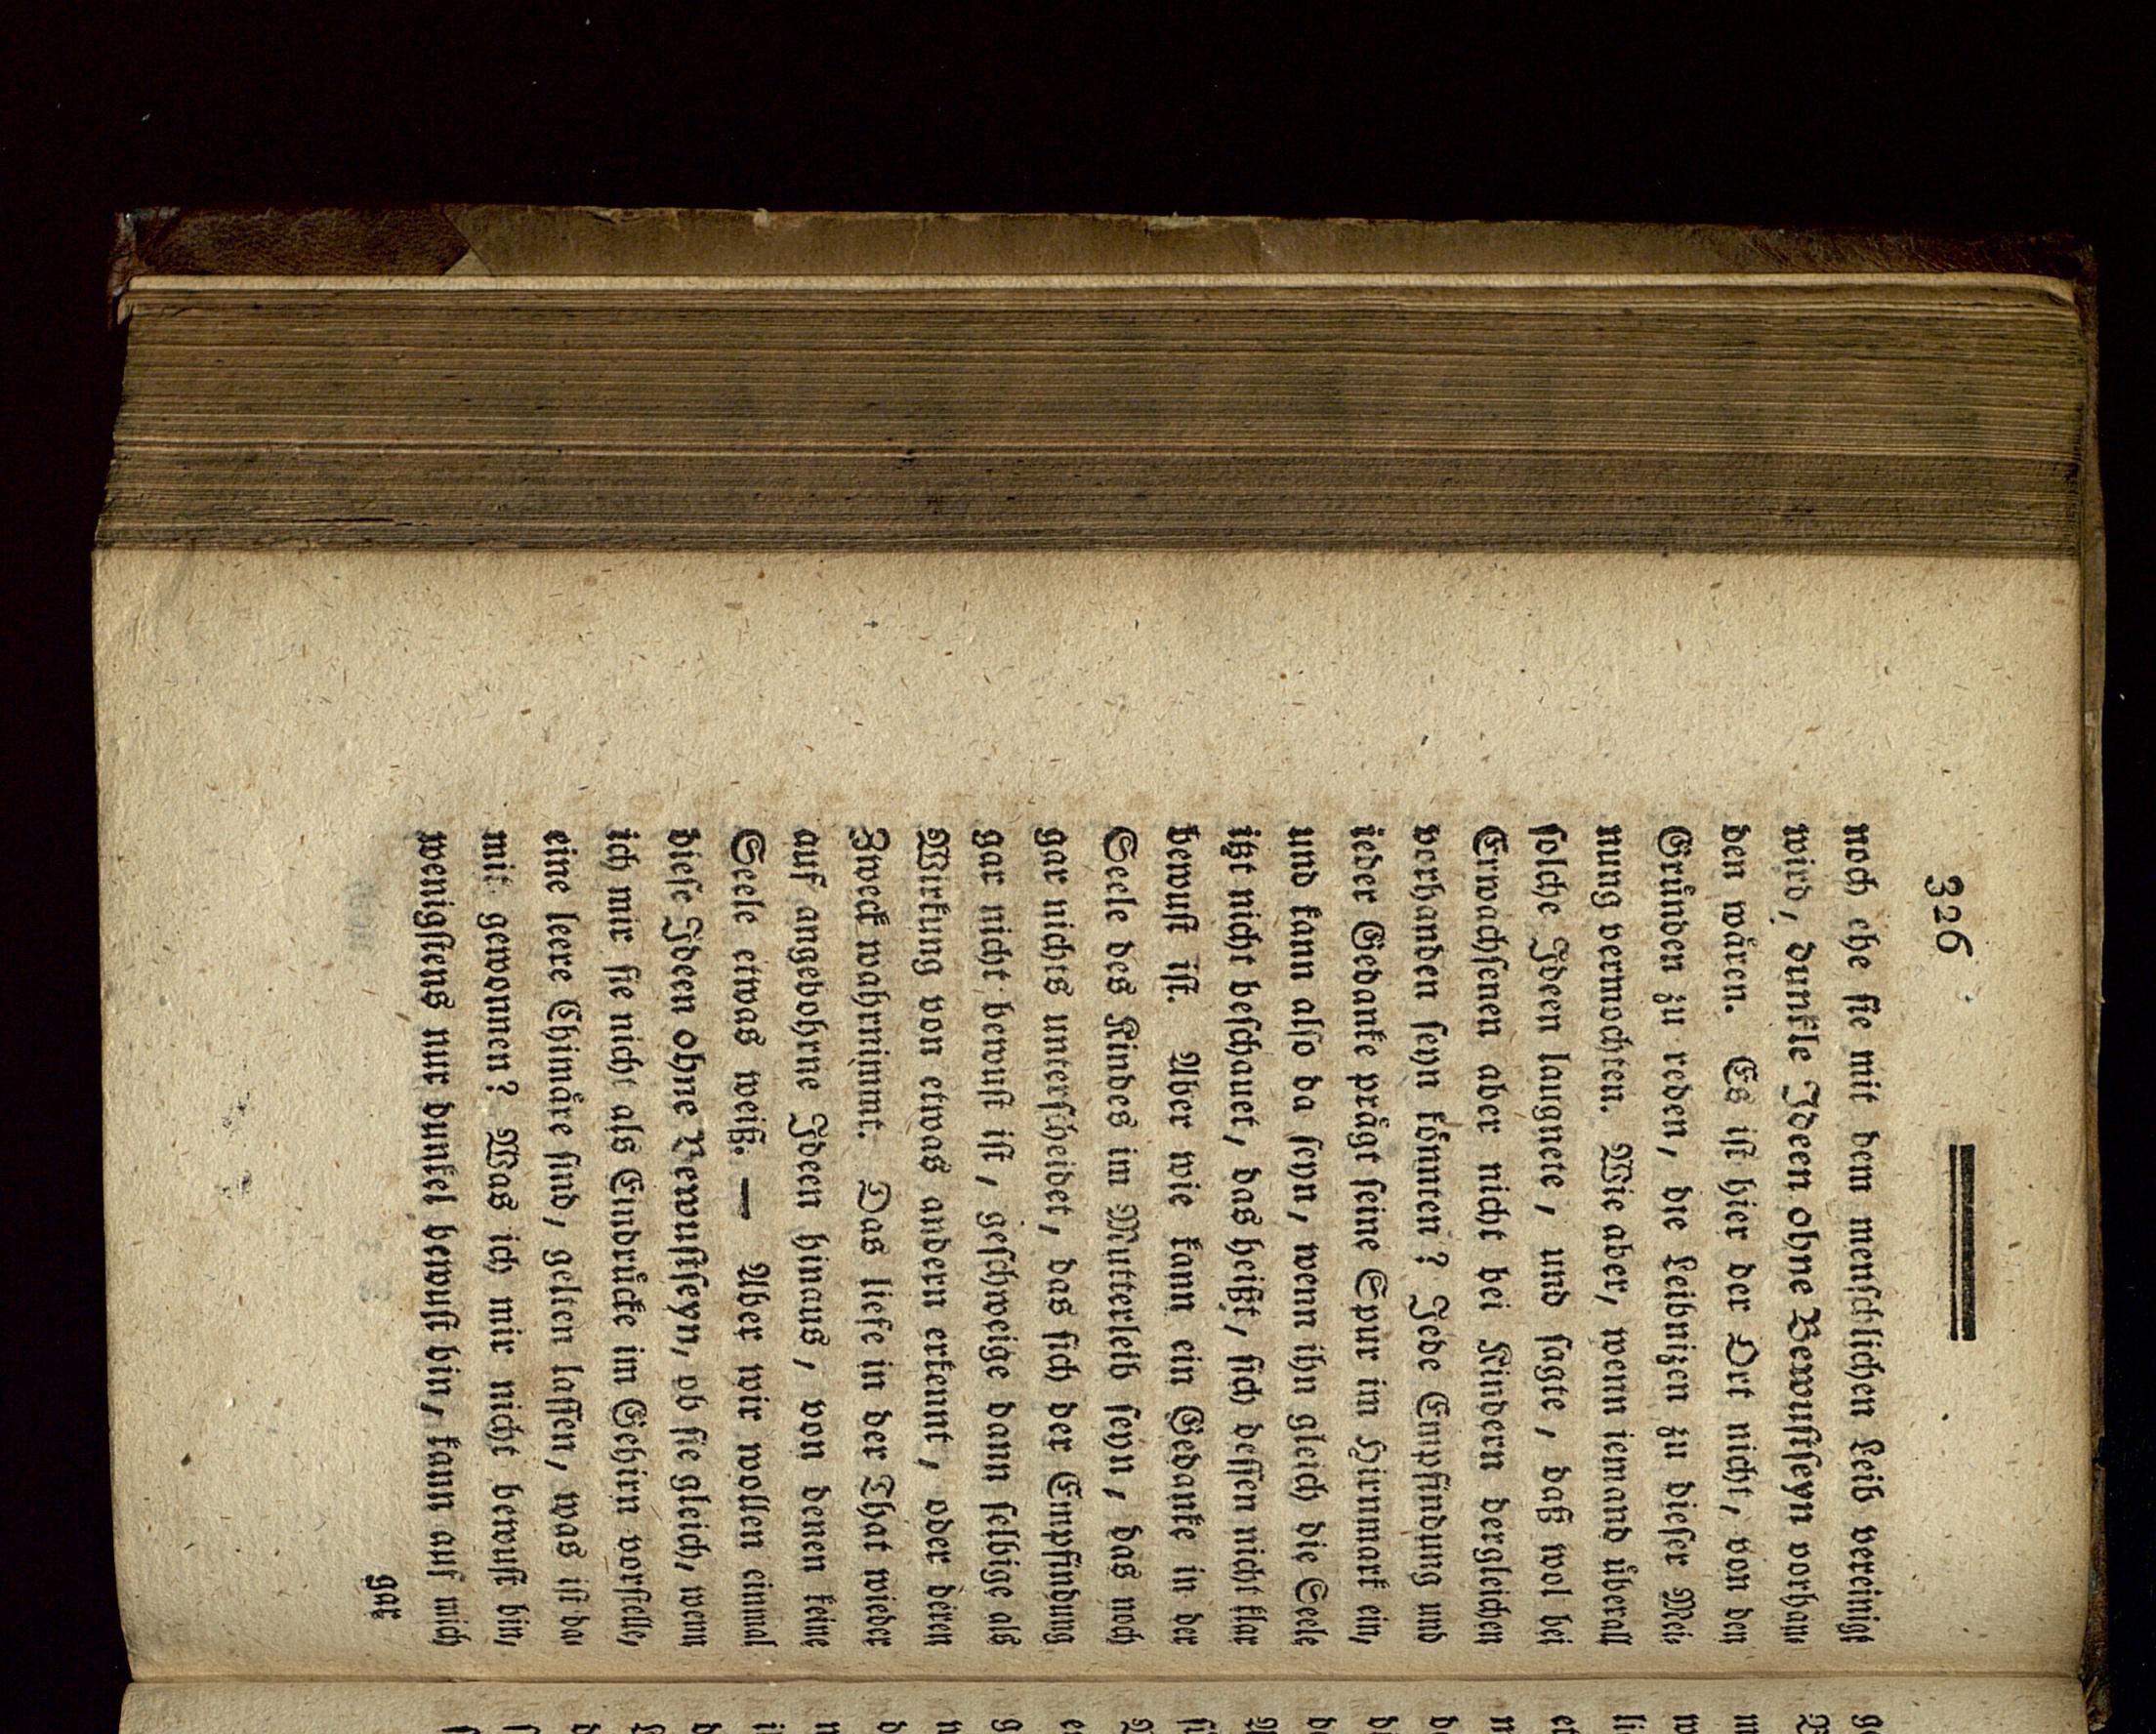 326
noch ehe sie mit dem menschlichen Leib vereinigt
wird, dunkle Ideen ohne Bewustseyn vorhan-
den wären. Es ist hier der Ort nicht, von den
Gründen zu reden, die Leibnizen zu dieser Mei-
nung vermochten. Wie aber, wenn iemand überall
solche Ideen laugnete, und sagte, daß wol bei
Erwachsenen aber nicht bei Kindern dergleichen
vorhanden seyn könnten? Jede Empfindung und
ieder Gedanke prägt seine Spur im Hirnmark ein,
und kann also da seyn, wenn ihn gleich die Seele
izt nicht beschauet, das heißt, sich dessen nicht klar
bewust ist. Aber wie kann ein Gedanke in der
Seele des Kindes im Mutterleib seyn, das noch
gar nichts unterscheidet, das sich der Empfindung
gar nicht bewust ist, geschweige dann selbige als
Wirkung von etwas andern erkennt, oder deren
Zweck wahrnimmt. Das liefe in der That wieder
auf angebohrne Ideen hinaus, von denen keine
Seele etwas weiß. — Aber wir wollen einmal
diese Ideen ohne Bewustseyn, ob sie gleich, wenn
ich mir sie nicht als Eindrücke im Gehirn vorstelle,
eine leere Chimäre sind, gelten lassen, was ist da-
mit gewonnen? Was ich mir nicht bewust bin,
wenigstens nur dunkel bewust bin, kann auf mich
gar